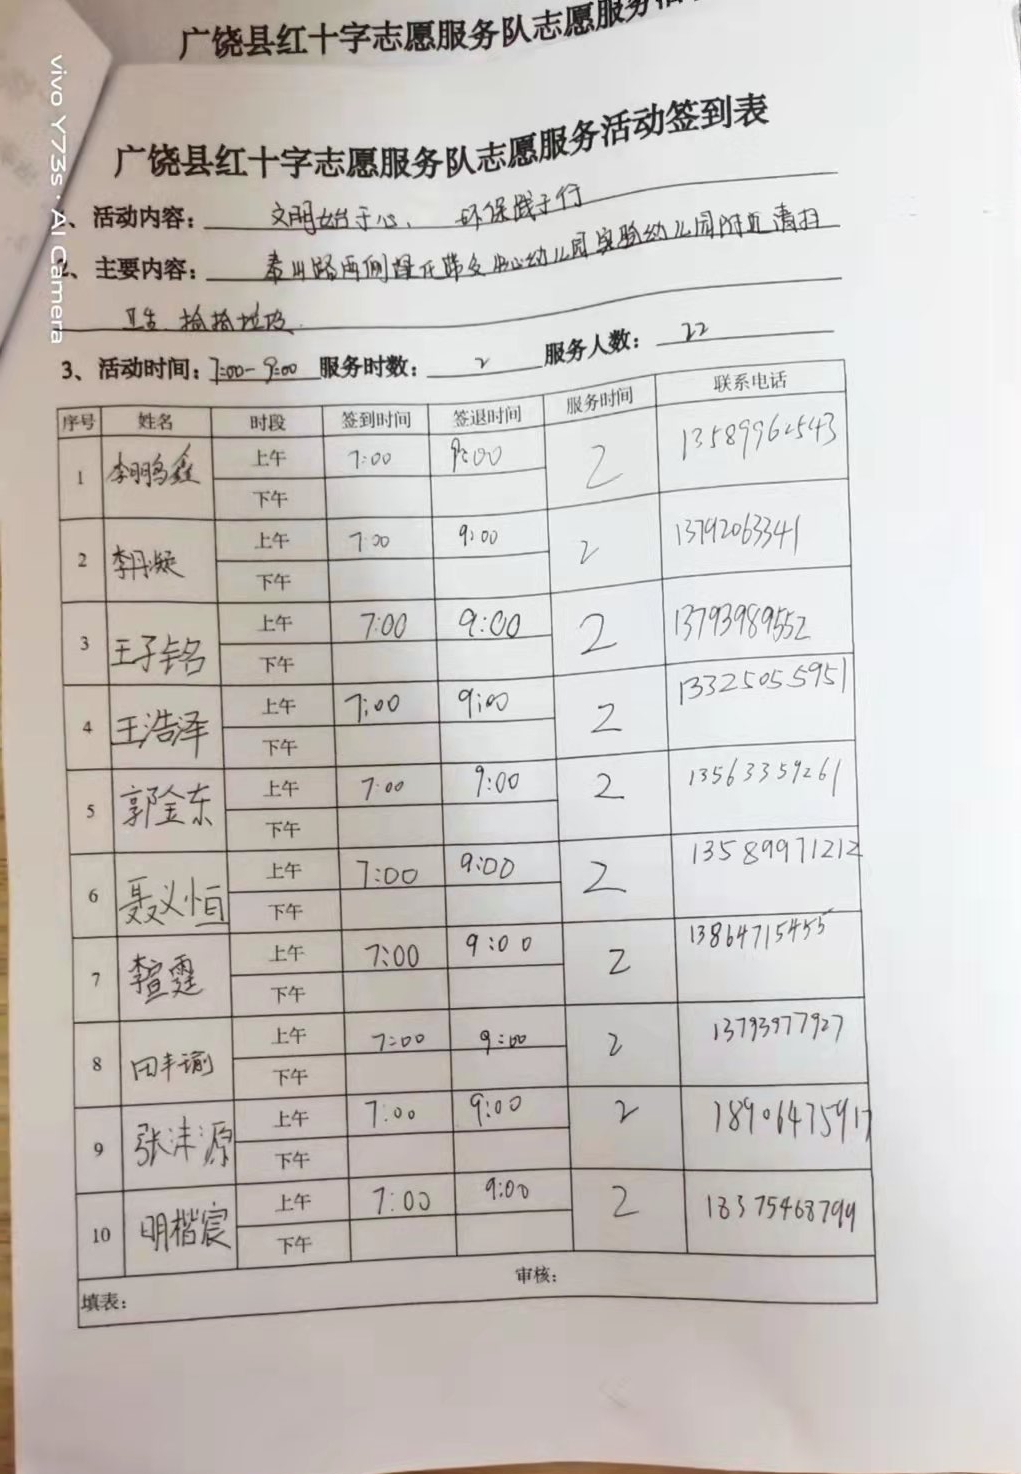 广饶县红十字志愿服务队志愿服务活
广饶县红十字志愿服务队志愿服务活动签到表
、活动内容： 文明始于心、 环保践于行
2、主要内容： 泰山路两侧绿化带及中心幼儿园实验幼儿园附近清扫
卫生、捡拾垃圾.
3、活动时间：7:00-9:00 服务时数： 2 服务人数： 22
序号 姓名 时段 签到时间 签退时间 服务时间 联系电话
1 李鹏鑫 上午 7:00 9:00 2 13589962543
下午
2 李丹凝 上午 7:00 9:00 2 13792063341
下午
3 王子铭 上午 7:00 9:00 2 13793989552
下午
4 王浩泽 上午 7:00 9:00 2 13325055951
下午
5 郭金东 上午 7:00 9:00 2 13563359261
下午
6 聂义恒 上午 7:00 9:00 2 13589971212
下午
7 李萱霆 上午 7:00 9:00 2 13864715455
下午
8 田丰瑜 上午 7:00 9:00 2 13793977927
下午
9 张沣源 上午 7:00 9:00 2 18906475917
下午
10 明楷宸 上午 7:00 9:00 2 18375468799
下午
填表： 审核：
vivo Y73s·AI Camera